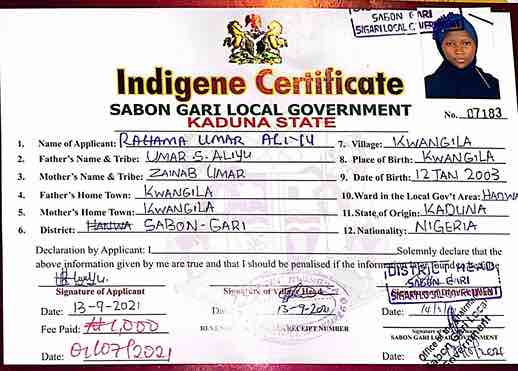 SABON GARI
SIGARI LOCAL GOVERNMENT
Indigene Certificate
SABON GARI LOCAL GOVERNMENT
KADUNA STATE
No. 07183
1. Name of Applicant: RAHAMA UMAR ALIYU 7. Village: KWANGILA
2. Father's Name & Tribe: UMAR S. ALIYU 8. Place of Birth: KWANGILA
3. Mother's Name & Tribe: ZAINAB UMAR 9. Date of Birth: 12 JAN 2003
4. Father's Home Town: KWANGILA 10. Ward in the Local Gov't Area: HANWA
5. Mother's Home Town: KWANGILA 11. State of Origin: KADUNA
6. District: HANWA SABON-GARI 12. Nationality: NIGERIA
Declaration by Applicant: I Solemnly declare that the
above information given by me are true and that I should be penalised if the
DISTRICT HEAD
SABON GARI
Signature of Applicant Signature of Village Head
Date: 13-9-2021 13-9-2021 Date:
Fee Paid: ₦1,000 RECEIPT NUMBER
SABON GARI LOCAL GOVERNMENT
Date: 01/07/2021 Date:
Office of the
Sabon Gari Local
Government